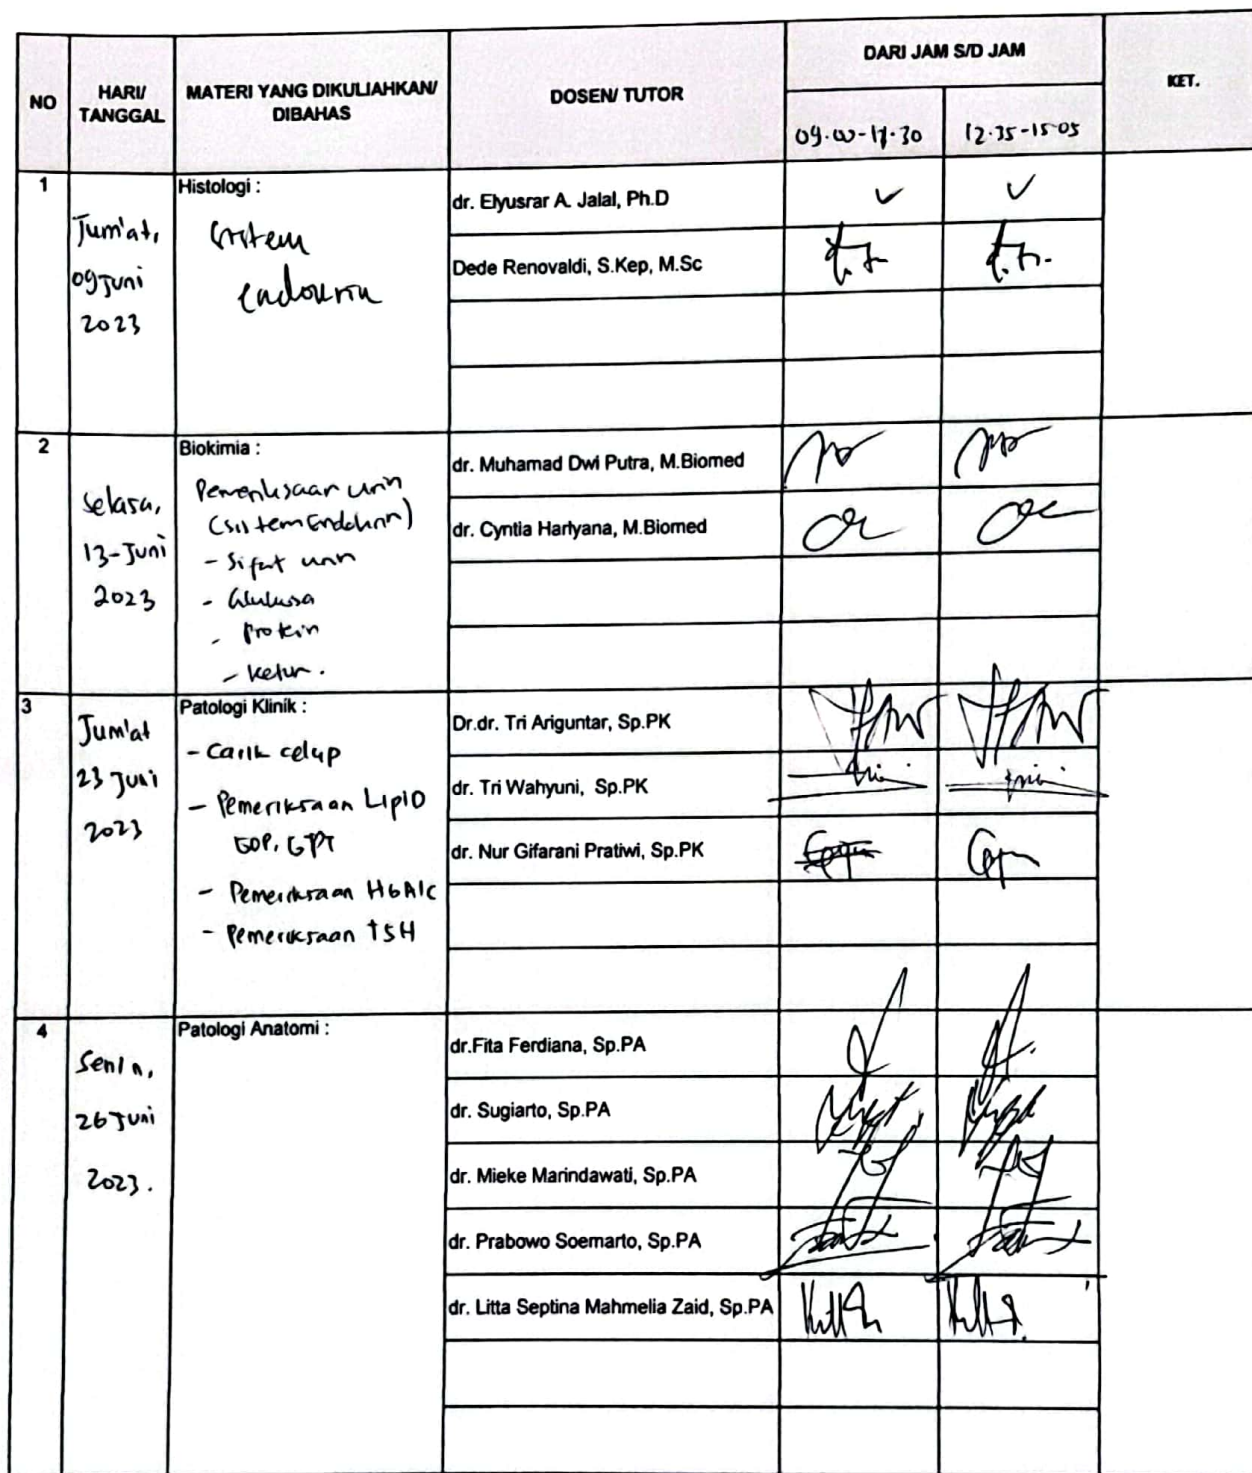 NO
HARI/
TANGGAL
MATERI YANG DIKULIAHKAN/
DIBAHAS
DOSEN/ TUTOR
DARI JAM S/D JAM
KET.
12.35-15.05
1
Jum'at,
09 Juni
2023
Histologi :
endokrin
dr. Elyusrar A. Jalal, Ph.D
Dede Renovaldi, S.Kep, M.Sc
2
Selasa,
13-Juni
2023
Biokimia :
Pemeriksaan urin
(sistem Endokrin)
- Sifat urin
- Glukosa
- Protein
dr. Muhamad Dwi Putra, M.Biomed
dr. Cyntia Hariyana, M.Biomed
3
Jum'at
23 Juni
2023
Patologi Klinik :
- Carik celup
- Pemeriksaan Lipid
- Pemeriksaan HbA1c
- Pemeriksaan TSH
Dr.dr. Tri Ariguntar, Sp.PK
dr. Tri Wahyuni, Sp.PK
dr. Nur Gifarani Pratiwi, Sp.PK
4
Senin,
26 Juni
2023.
Patologi Anatomi :
dr.Fita Ferdiana, Sp.PA
dr. Sugiarto, Sp.PA
dr. Mieke Marindawati, Sp.PA
dr. Prabowo Soemarto, Sp.PA
dr. Litta Septina Mahmelia Zaid, Sp.PA